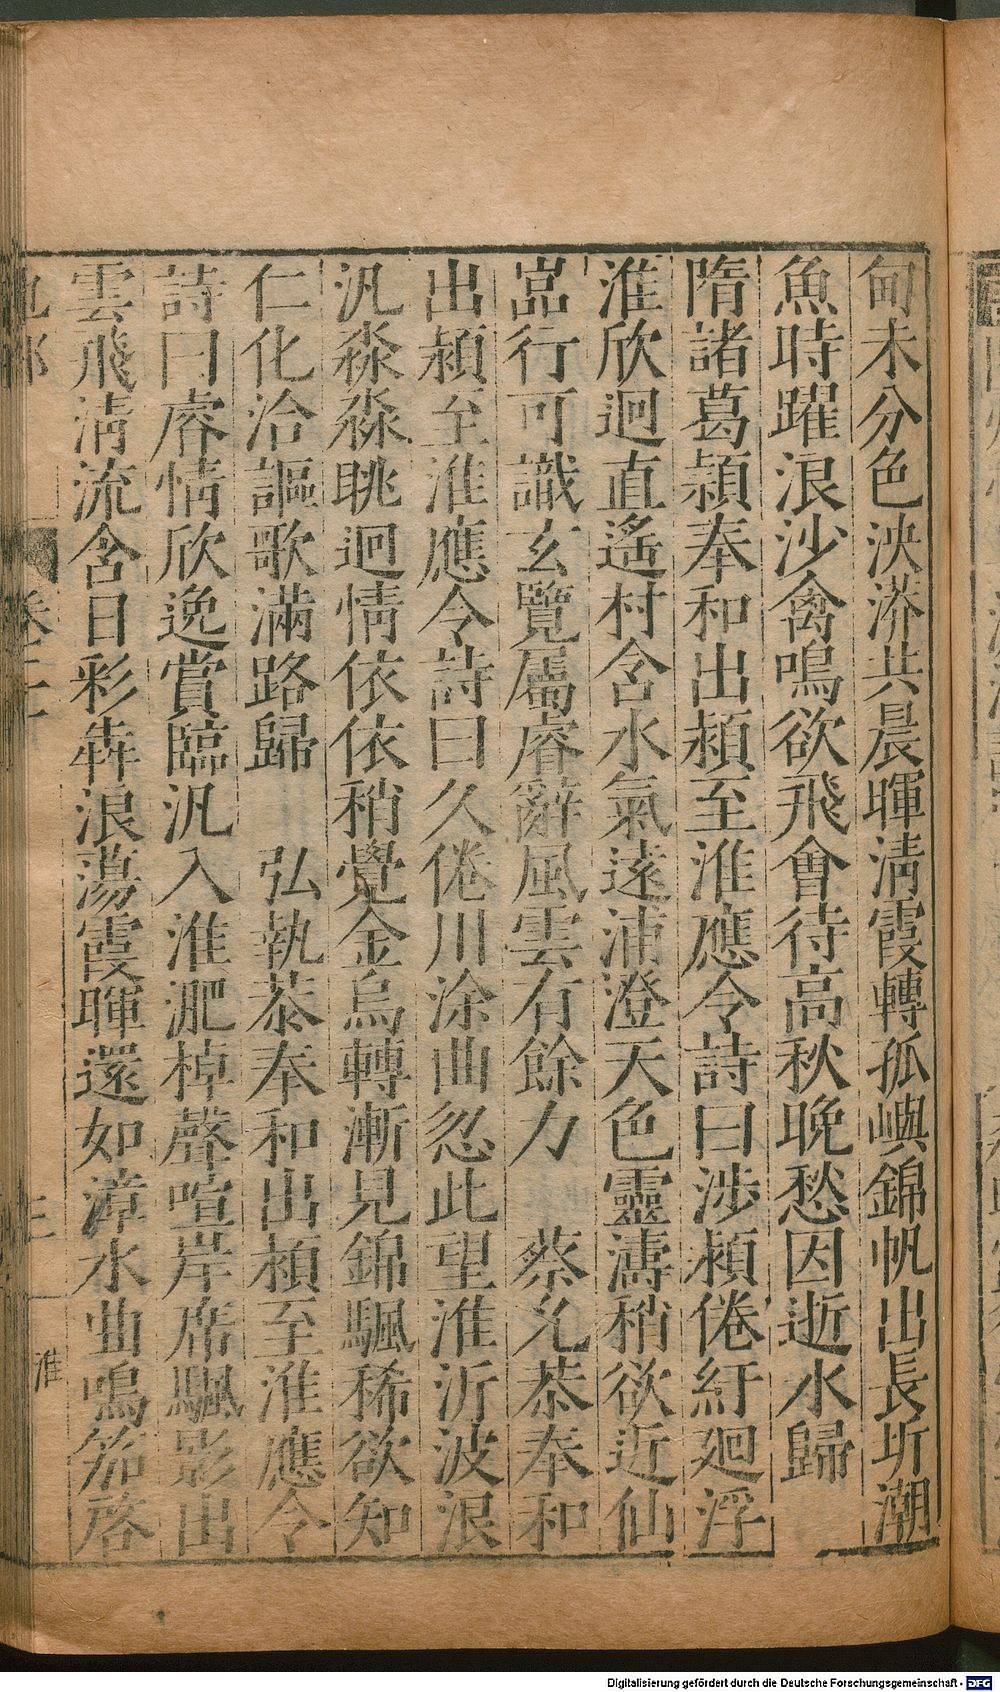 甸未分色泱漭共晨暉淸霞轉孤嶼錦帆出長圻潮
魚時躍浪沙禽鳴欲飛會待高秋晚愁因逝水歸
隋諸葛潁奉和出潁至淮應令詩曰涉潁倦紆廻浮
淮欣迴直遙村含水氣遠浦澄天色靈濤稍欲近仙
嵓行可識玄覽屬睿辭風雲有餘力 蔡允恭奉和
出潁至淮應令詩曰久倦川涂曲忽此望淮沂波浪
汎淼淼眺迴情依依稍覺金烏轉漸見錦颿稀欲知
仁化洽謳歌滿路歸 弘執恭奉和出潁至淮應令
詩曰睿情欣逸賞臨汎入淮淝棹聲喧岸席颿影出
雲飛淸流含日彩犇浪蕩霞暉還如漳水曲鳴笳啓
淮
Digitalisierung gefördert durch die Deutsche Forschungsgemeinschaft - DFG